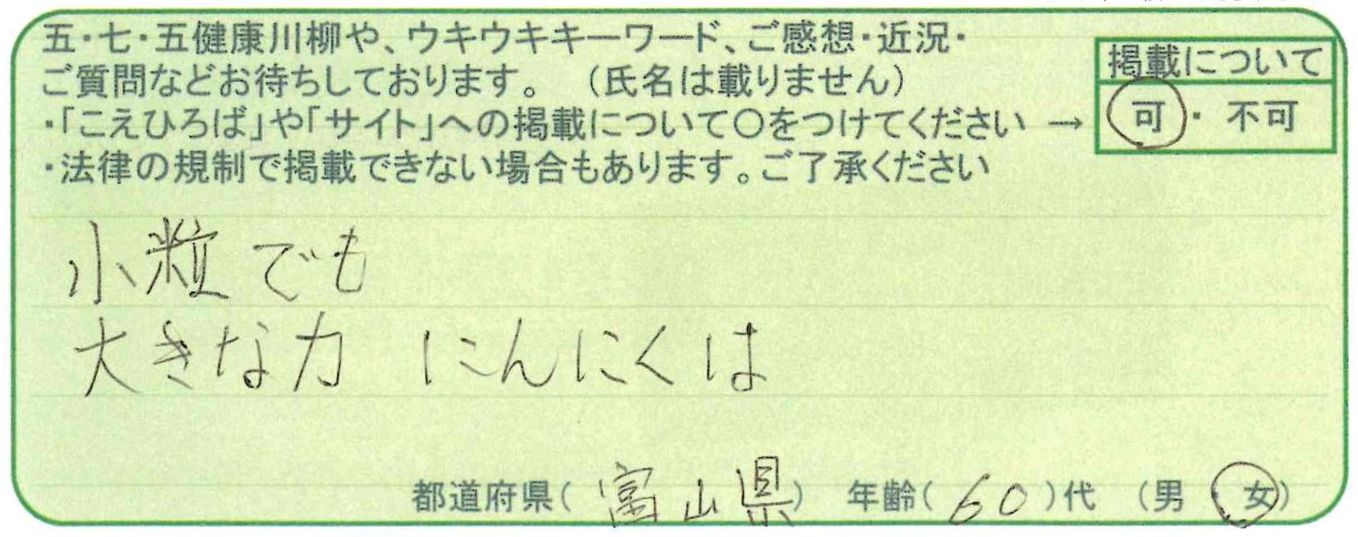 五・七・五健康川柳や、ウキウキキーワード、ご感想・近況・
ご質問などお待ちしております。 (氏名は載りません)
・「こえひろば」や「サイト」への掲載について○をつけてください →
・法律の規制で掲載できない場合もあります。ご了承ください
掲載について
可・不可
小粒でも
大きな力 にんにくは
都道府県(富山県) 年齢(60)代 (男・女)